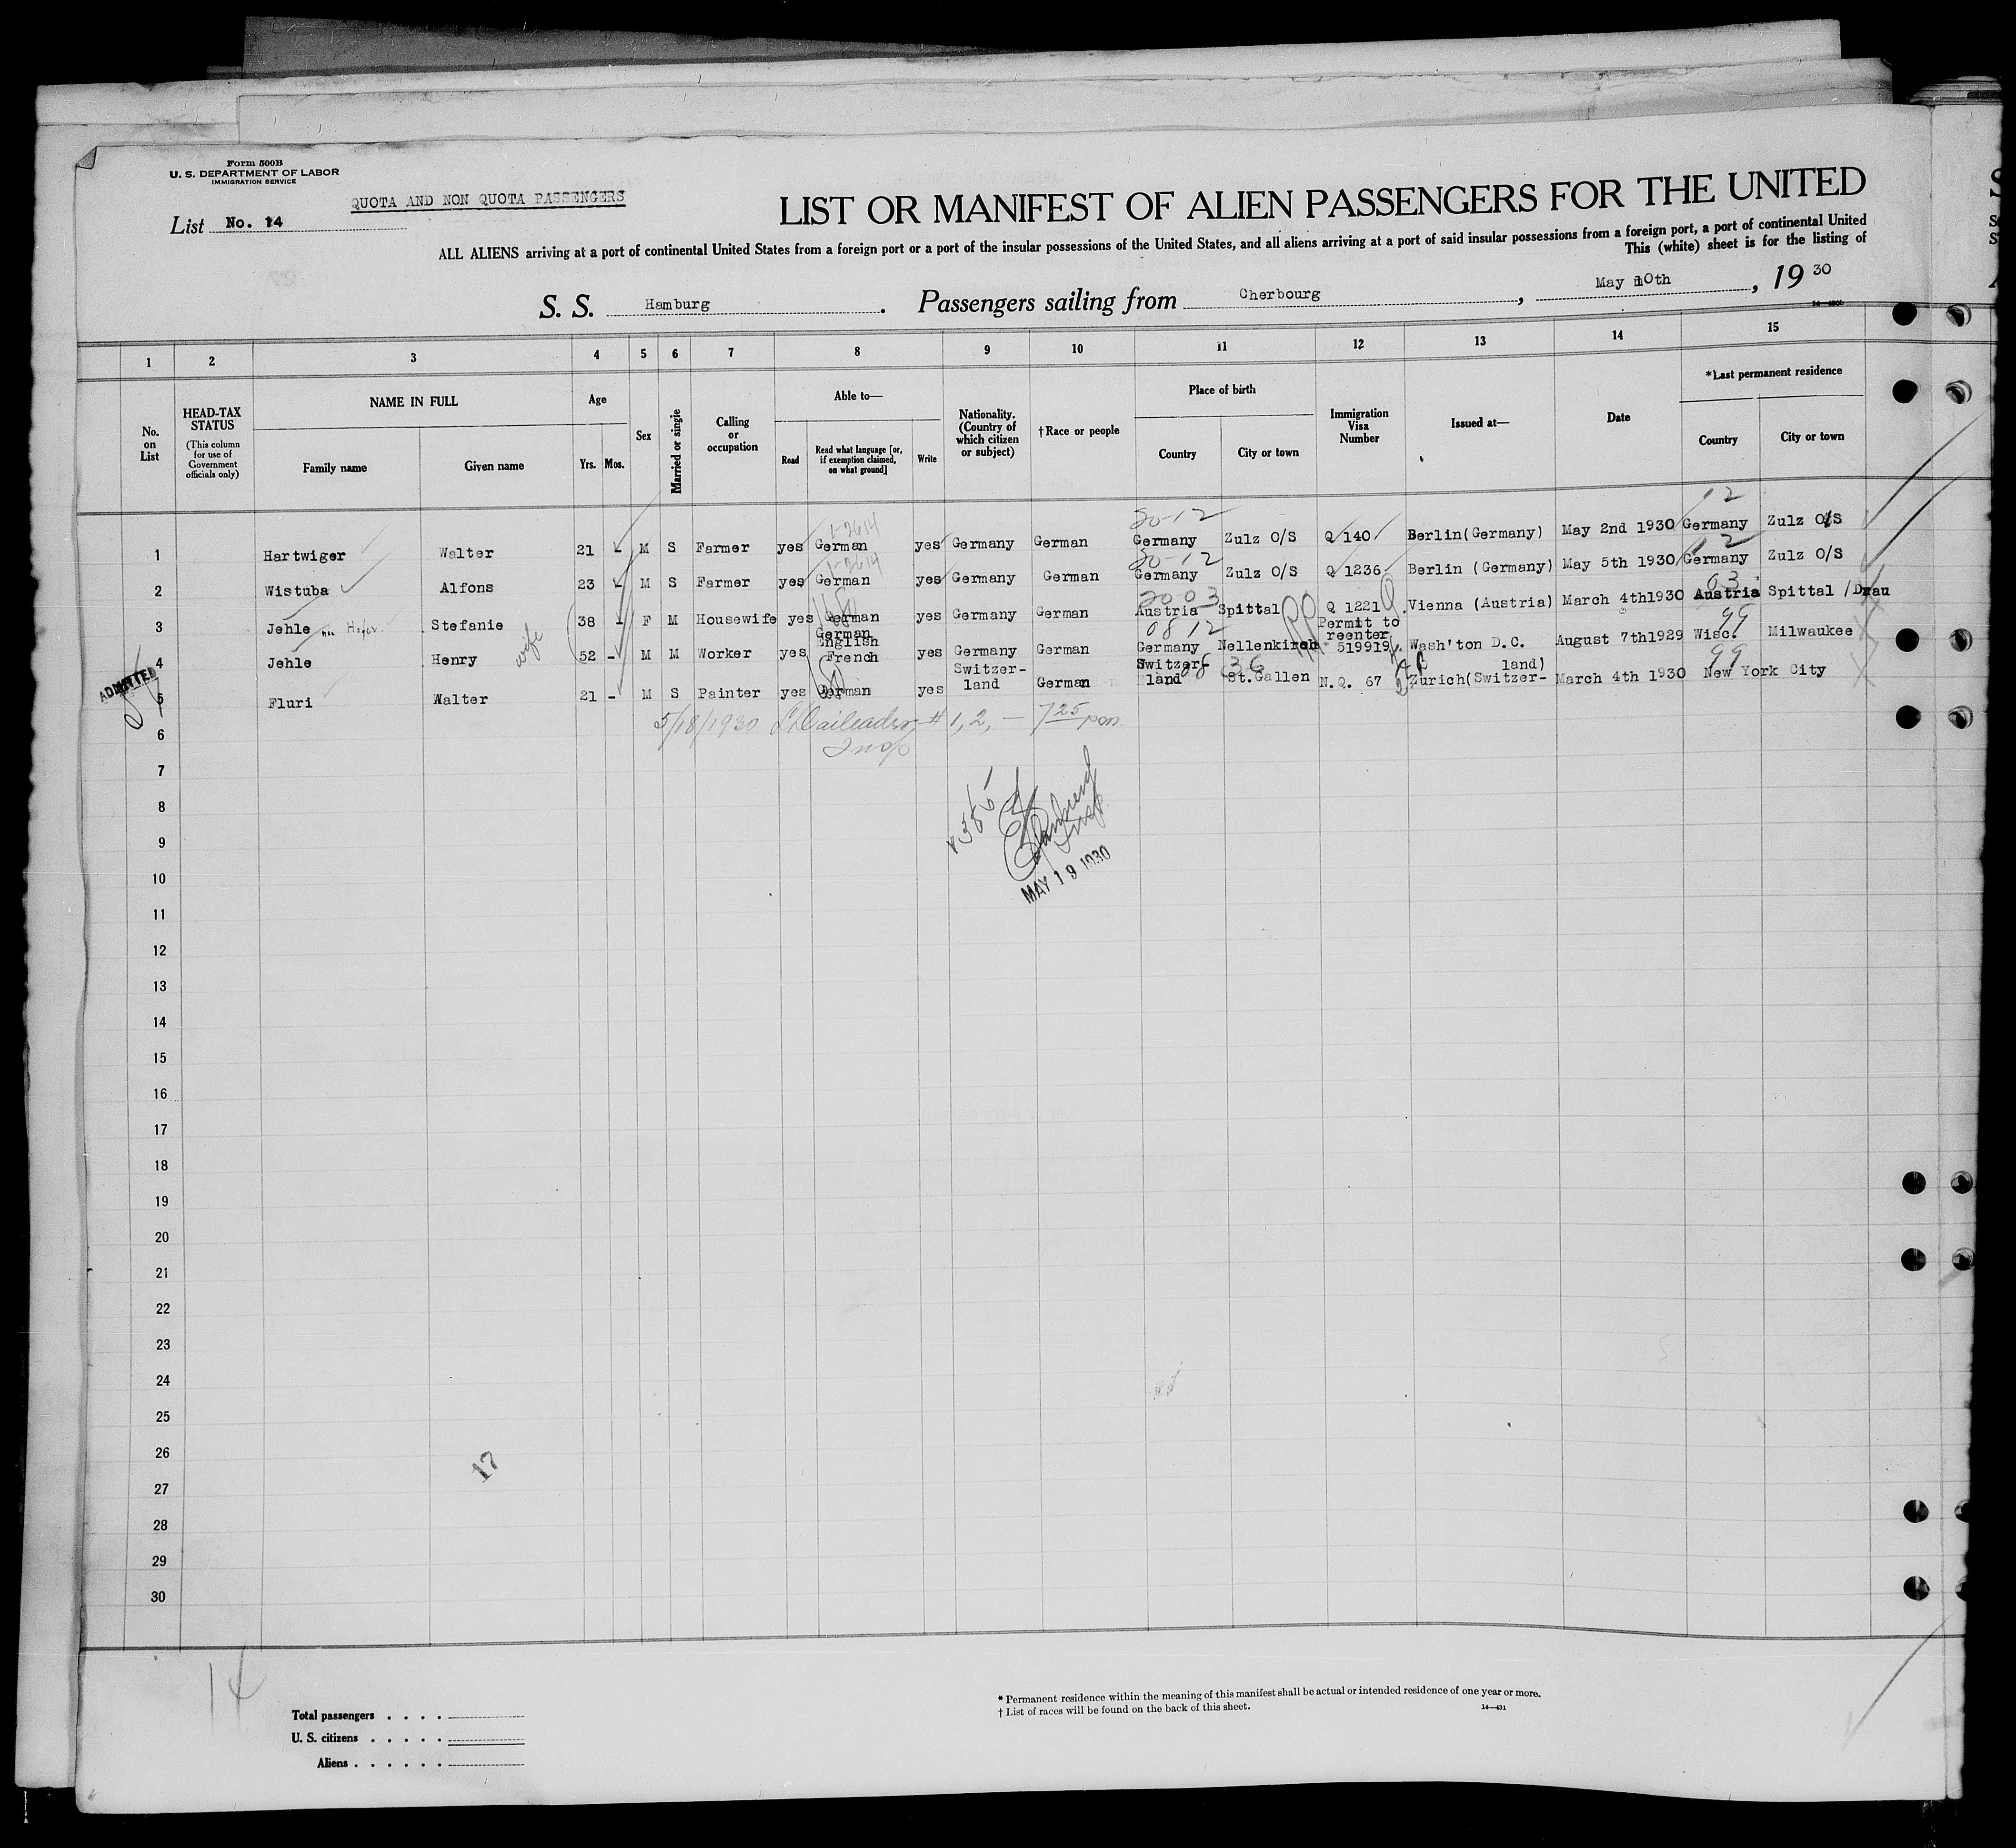 Form 500B
U. S. DEPARTMENT OF LABOR
IMMIGRATION SERVICE
QUOTA AND NON QUOTA PASSENGERS
List No. 14
LIST OR MANIFEST OF ALIEN PASSENGERS FOR THE UNITED
ALL ALIENS arriving at a port of continental United States from a foreign port or a port of the insular possessions of the United States, and all aliens arriving at a port of said insular possessions from a foreign port, a port of continental United
This (white) sheet is for the listing of
S. S. Hamburg . Passengers sailing from Cherbourg , May 10th , 19 30
1 2 3 4 5 6 7 8 9 10 11 12 13 14 15
No. on List
HEAD-TAX STATUS
(This column for use of Government officials only)
NAME IN FULL
Family name
Given name
Age
Yrs. Mos.
Sex
Married or single
Calling or occupation
Able to—
Read
Read what language [or, if exemption claimed, on what ground]
Write
Nationality. (Country of which citizen or subject)
†Race or people
Place of birth
Country
City or town
Immigration Visa Number
Issued at—
Date
*Last permanent residence
Country
City or town
20-12 12
1-2614
1 Hartwiger Walter 21 M S Farmer yes German yes Germany German Germany Zulz O/S Q 140 Berlin(Germany) May 2nd 1930 Germany Zulz O/S
20-12 12
1-2614
2 Wistuba Alfons 23 M S Farmer yes German yes Germany German Germany Zulz O/S Q 1236 Berlin (Germany) May 5th 1930 Germany Zulz O/S
2003 03
3 Jehle nee Hofer Stefanie 38 F M Housewife yes German yes Germany German Austria Spittal Q 1221 Vienna (Austria) March 4th1930 Austria Spittal /Drau
wife
08 12 99
4 Jehle Henry 52 - M M Worker yes German English French yes Germany German Germany Nellenkirch Permit to reenter 519919 Wash'ton D.C. August 7th1929 Wisc. Milwaukee
ADMITTED
08 36 99
5 Fluri Walter 21 - M S Painter yes German yes Switzer-land German Switzer-land St.Gallen N.Q. 67 Zurich(Switzer-land) March 4th 1930 New York City
6 5/18/1930 # 1, 2, — 7 25 pm
Insp
7
8
9
Insp.
MAY 19 1930
10
11
12
13
14
15
16
17
18
19
20
21
22
23
24
25
26
27
17
28
29
30
14
Total passengers . . . .
U. S. citizens . . . . .
Aliens . . . . . .
* Permanent residence within the meaning of this manifest shall be actual or intended residence of one year or more.
† List of races will be found on the back of this sheet.
14—431